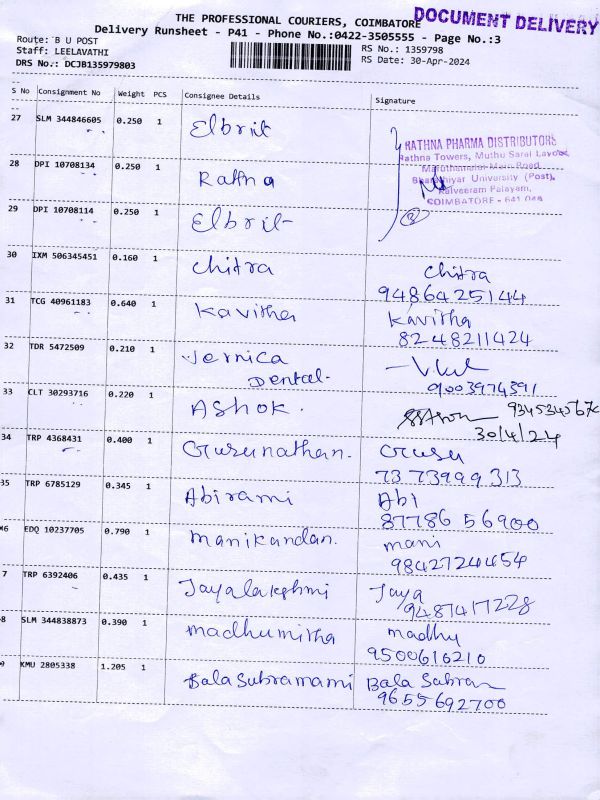 THE PROFESSIONAL COURIERS, COIMBATORE
DOCUMENT DELIVERY
Delivery Runsheet - P41 - Phone No.:0422-3505555 - Page No.:3
Route: B U POST
RS No.: 1359798
Staff: LEELAVATHI
RS Date: 30-Apr-2024
DRS No.: DCJB135979803
S No Consignment No Weight PCS Consignee Details Signature
27 SLM 344846605 0.250 1 Elbrit
RATHNA PHARMA DISTRIBUTORS
Rathna Towers, Muthu Sarai Layout,
Maruthamalai Main Road
Bharathiyar University (Post),
Kalveeram Palayam,
COIMBATORE - 641 046
28 DPI 10708134 0.250 1 Rathna
29 DPI 10708114 0.250 1 Elbrit
30 IXM 506345451 0.160 1 Chitra Chitra
9486425144
31 TCG 40961183 0.640 1 Kavitha Kavitha
8248211424
32 TDR 5472509 0.210 1 Jernica
Dental. 9003974391
33 CLT 30293716 0.220 1 Ashok.
30/4/24
34 TRP 4368431 0.400 1 Gurunathan. Guru
73 73999 313
35 TRP 6785129 0.345 1 Abirami Abi
87786 56900
36 EDQ 10237705 0.790 1 Manikandan. mani
9842724454
7 TRP 6392406 0.435 1 Jayalakshmi Jaya
9487417228
8 SLM 344838873 0.390 1 madhumitha madhu
9500616210
9 KMU 2805338 1.205 1 BalaSubramami Bala Subran
9655692700